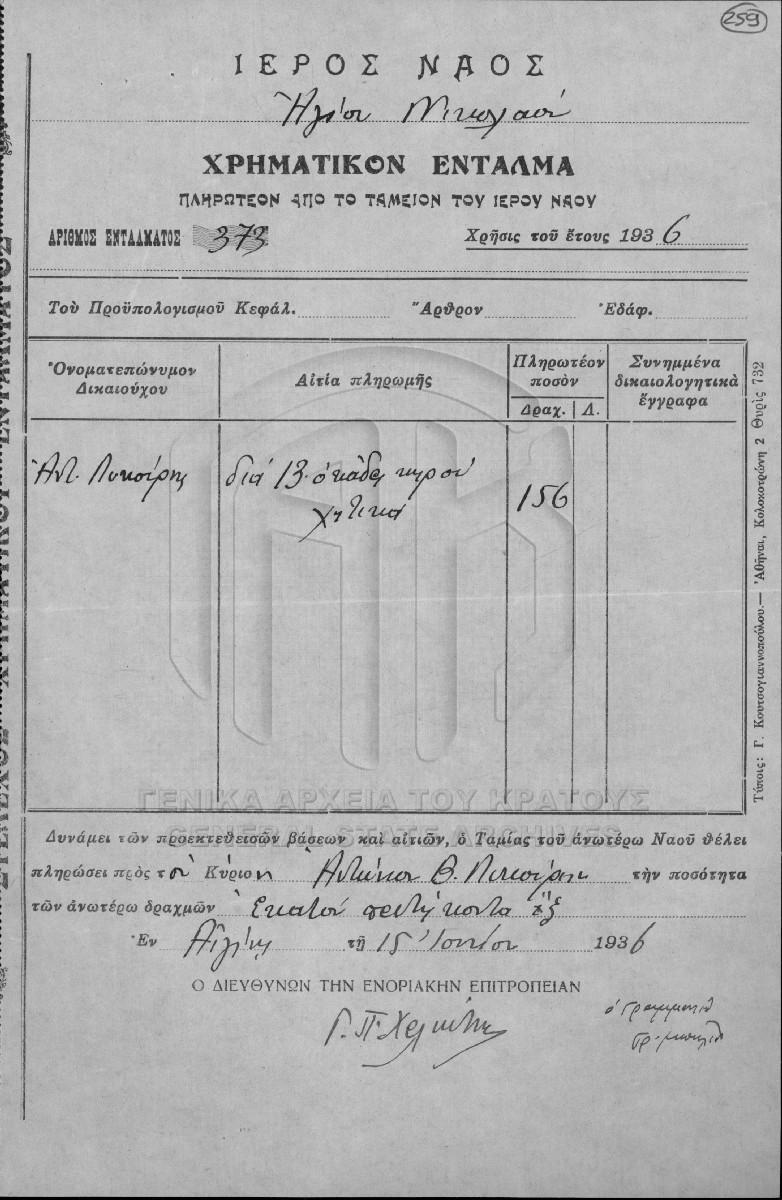 259
ΙΕΡΟΣ ΝΑΟΣ
Ἁγίου Νικολάου
ΧΡΗΜΑΤΙΚΟΝ ΕΝΤΑΛΜΑ
ΠΛΗΡΩΤΕΟΝ ΑΠΟ ΤΟ ΤΑΜΕΙΟΝ ΤΟΥ ΙΕΡΟΥ ΝΑΟΥ
ΑΡΙΘΜΟΣ ΕΝΤΑΛΜΑΤΟΣ 373 Χρῆσις τοῦ ἔτους 1936
Τοῦ Προϋπολογισμοῦ Κεφάλ. Ἄρθρον Ἐδάφ.
Ὀνοματεπώνυμον Δικαιούχου
Αἰτία πληρωμῆς
Πληρωτέον ποσόν
Δραχ. Λ.
Συνημμένα δικαιολογητικὰ ἔγγραφα
Ἀντ.
διά 13 ὀκάδες κηροῦ
156
Δυνάμει τῶν προεκτεθεισῶν βάσεων καὶ αἰτιῶν, ὁ Ταμίας τοῦ ἀνωτέρω Ναοῦ θέλει
πληρώσει πρὸς τὸν Κύριον Ἀντώνιον Θ. τὴν ποσότητα
τῶν ἀνωτέρω δραχμῶν Ἑκατόν πεντήκοντα ἕξ
Ἐν Αἰγίνῃ τῇ 15 Ἰουνίου 1936
Ο ΔΙΕΥΘΥΝΩΝ ΤΗΝ ΕΝΟΡΙΑΚΗΝ ΕΠΙΤΡΟΠΕΙΑΝ
Γ. Π.
ὁ Γραμματεύς
Τύποις: Γ. Κουτσογιαννοπούλου.— Ἀθῆναι, Κολοκοτρώνη 2 Θυρὶς 732
ΓΕΝΙΚΑ ΑΡΧΕΙΑ ΤΟΥ ΚΡΑΤΟΥΣ
GENERAL STATE ARCHIVES